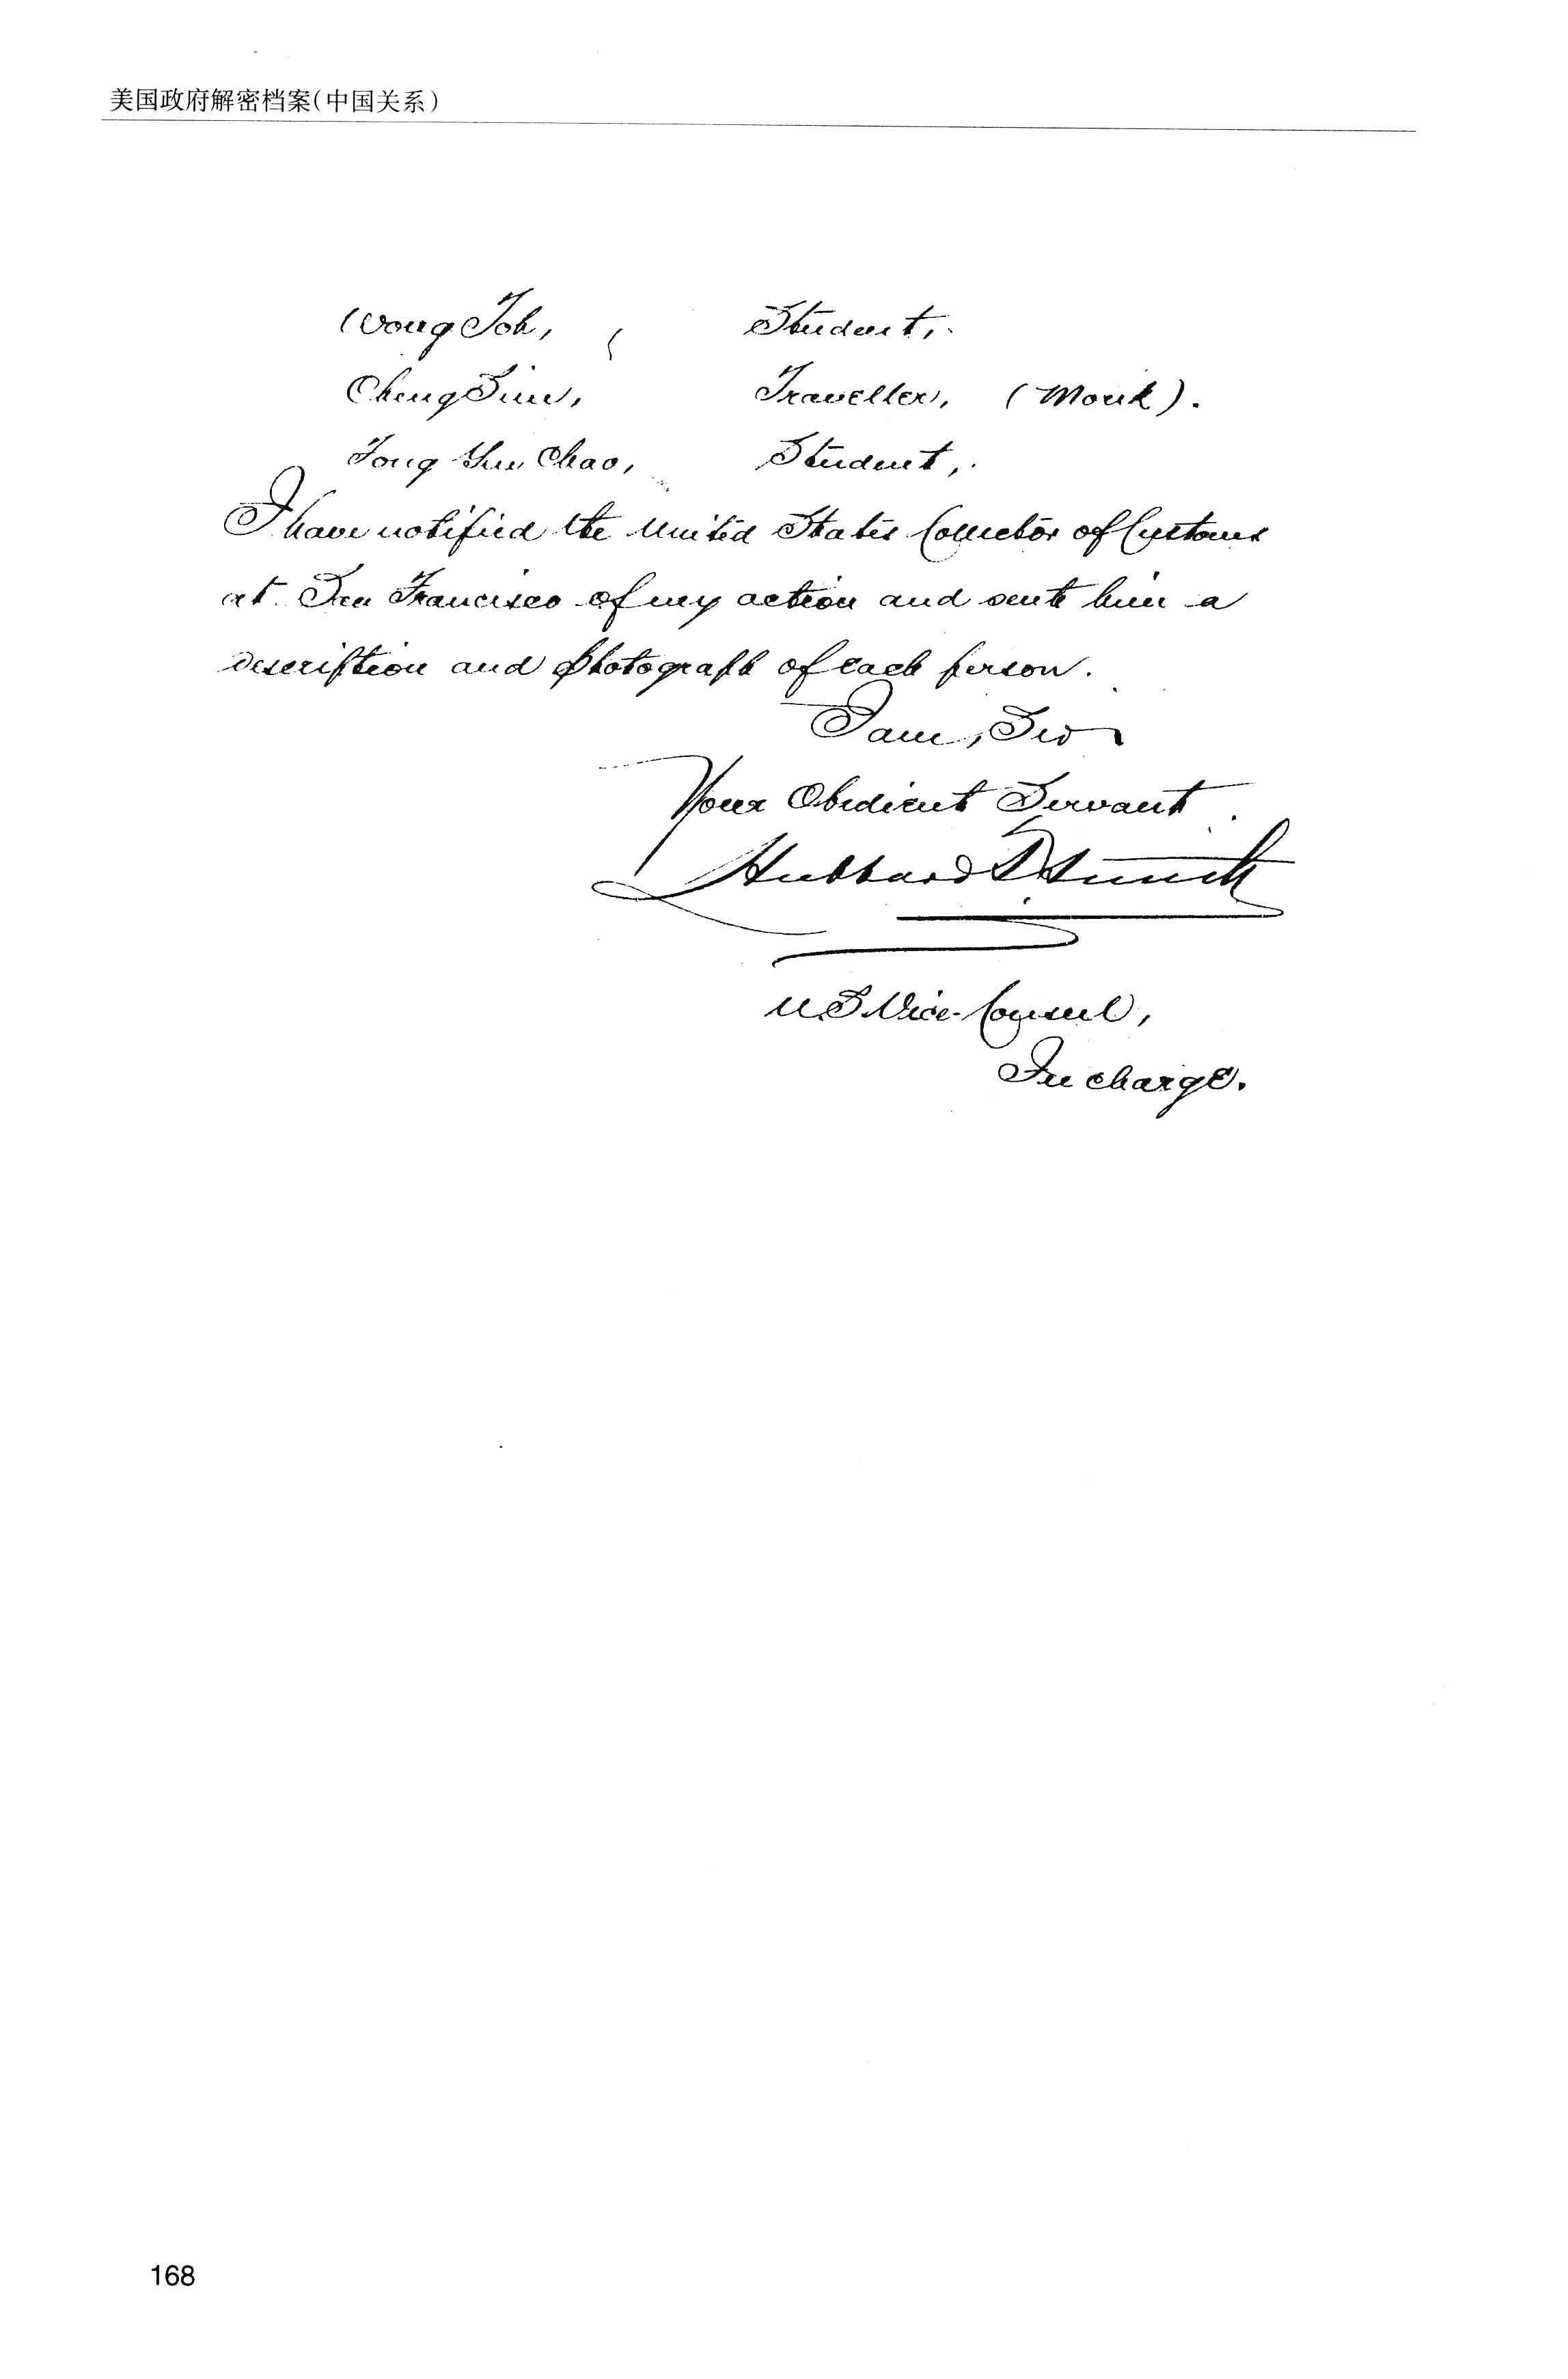 美国政府解密档案(中国关系)
Wong Joh, Student,
Cheng Sim, Traveller, (Monk).
Tong Yue Chao, Student,
I have notified the United States Collector of Customs
at San Francisco of my action and sent him a
description and photograph of each person.
I am, Sir
Your Obedient Servant
Hubbard T. Smith
U.S. Vice-Consul,
In charge.
168